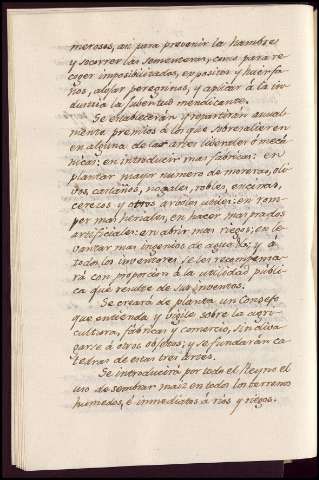 merosos, asi para prevenir la hambres
y socorrer las sementeras, como para re
coger imposibilitados, expositos y huerfa
nos, alojar peregrinos, y aplicar á la in
dustria la juventud mendicante.
Se establecerán y repartirán anual
mente premios á los que sobresalieren
en alguna de las artes liberales ó mecá
nicas: en introducir mas fabricas: en
plantar mayor numero de moreras, oli
vos, castaños, nogales, robles, encinas,
cerezos y otros arboles utiles: en rom
per mas heriales, en hacer mas prados
artificiales: en abrir mas riegos; en le
vantar mas ingenios de agua &a; y á
todos los inventores se les recompensa
rá con proporcion á la utilidad publi
ca que resulte de sus inventos.
Se creará de planta un Consejo
que entienda y vigile sobre la agri
cultura, fabricas y comercio, sin divai
garse á otros objetos; y se fundarán ca
tedras de estas tres artes.
Se introducirá por todo el Reyno el
uso de sembrar maiz en todos los terrenos
humedos, é inmediatos á rios y riegos.